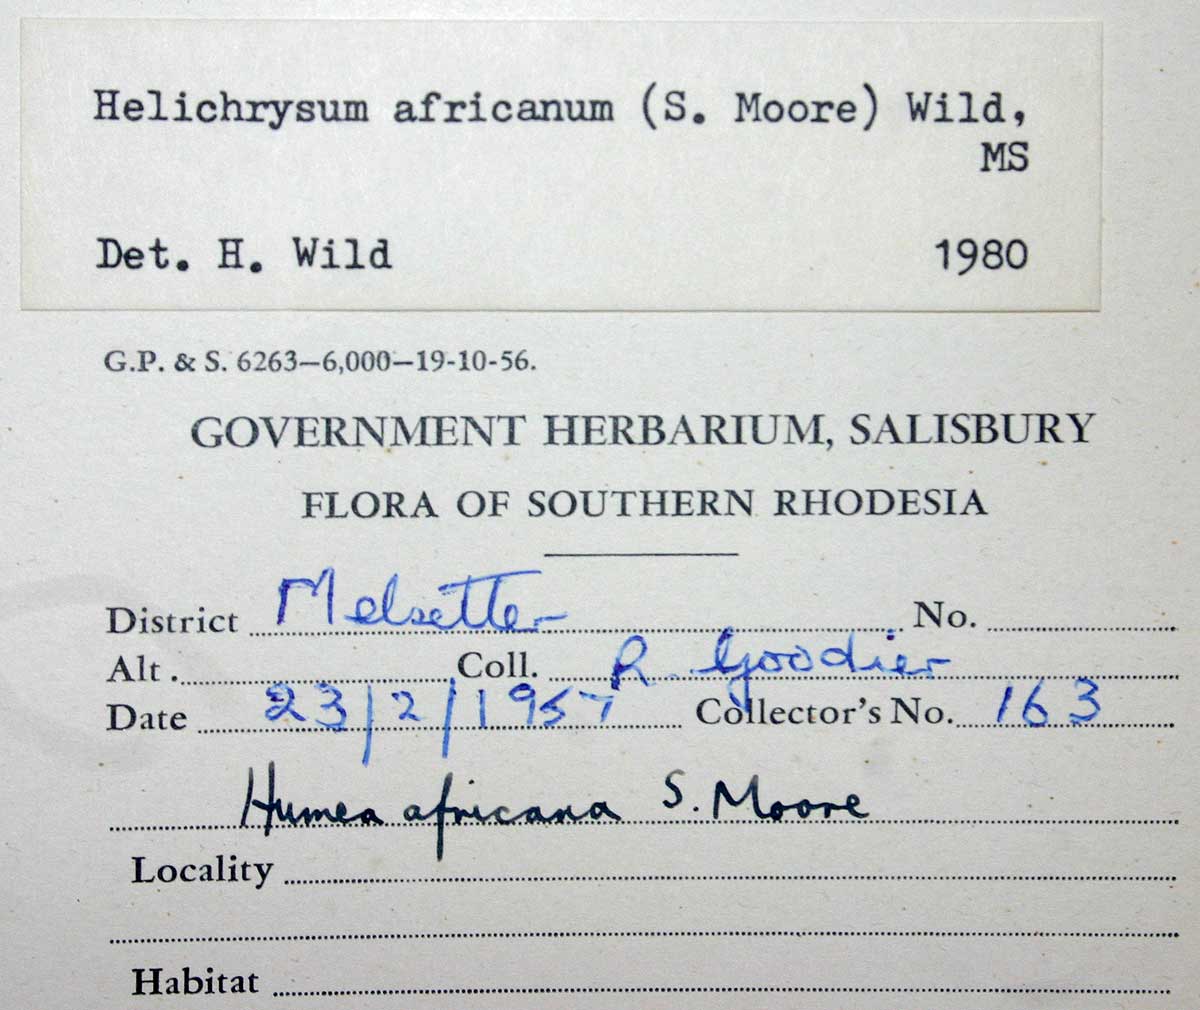 Helichrysum africanum (S. Moore) Wild,
MS
Det. H. Wild 1980
G.P. & S. 6263—6,000—19-10-56.
GOVERNMENT HERBARIUM, SALISBURY
FLORA OF SOUTHERN RHODESIA
District Melsetter No.
Alt. Coll. R. Goodier
Date 23/2/1957 Collector's No. 163
Humea africana S. Moore
Locality
Habitat